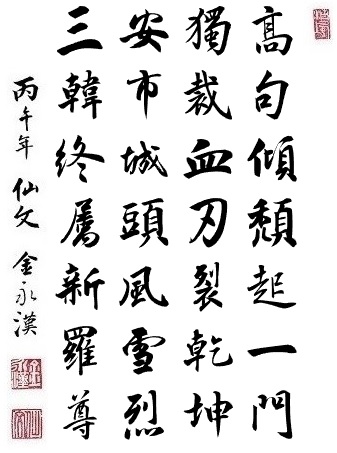 高句傾頹起一門
獨裁血刃裂乾坤
安市城頭風雪烈
三韓終屬新羅尊
丙午年 仙文 金永漢